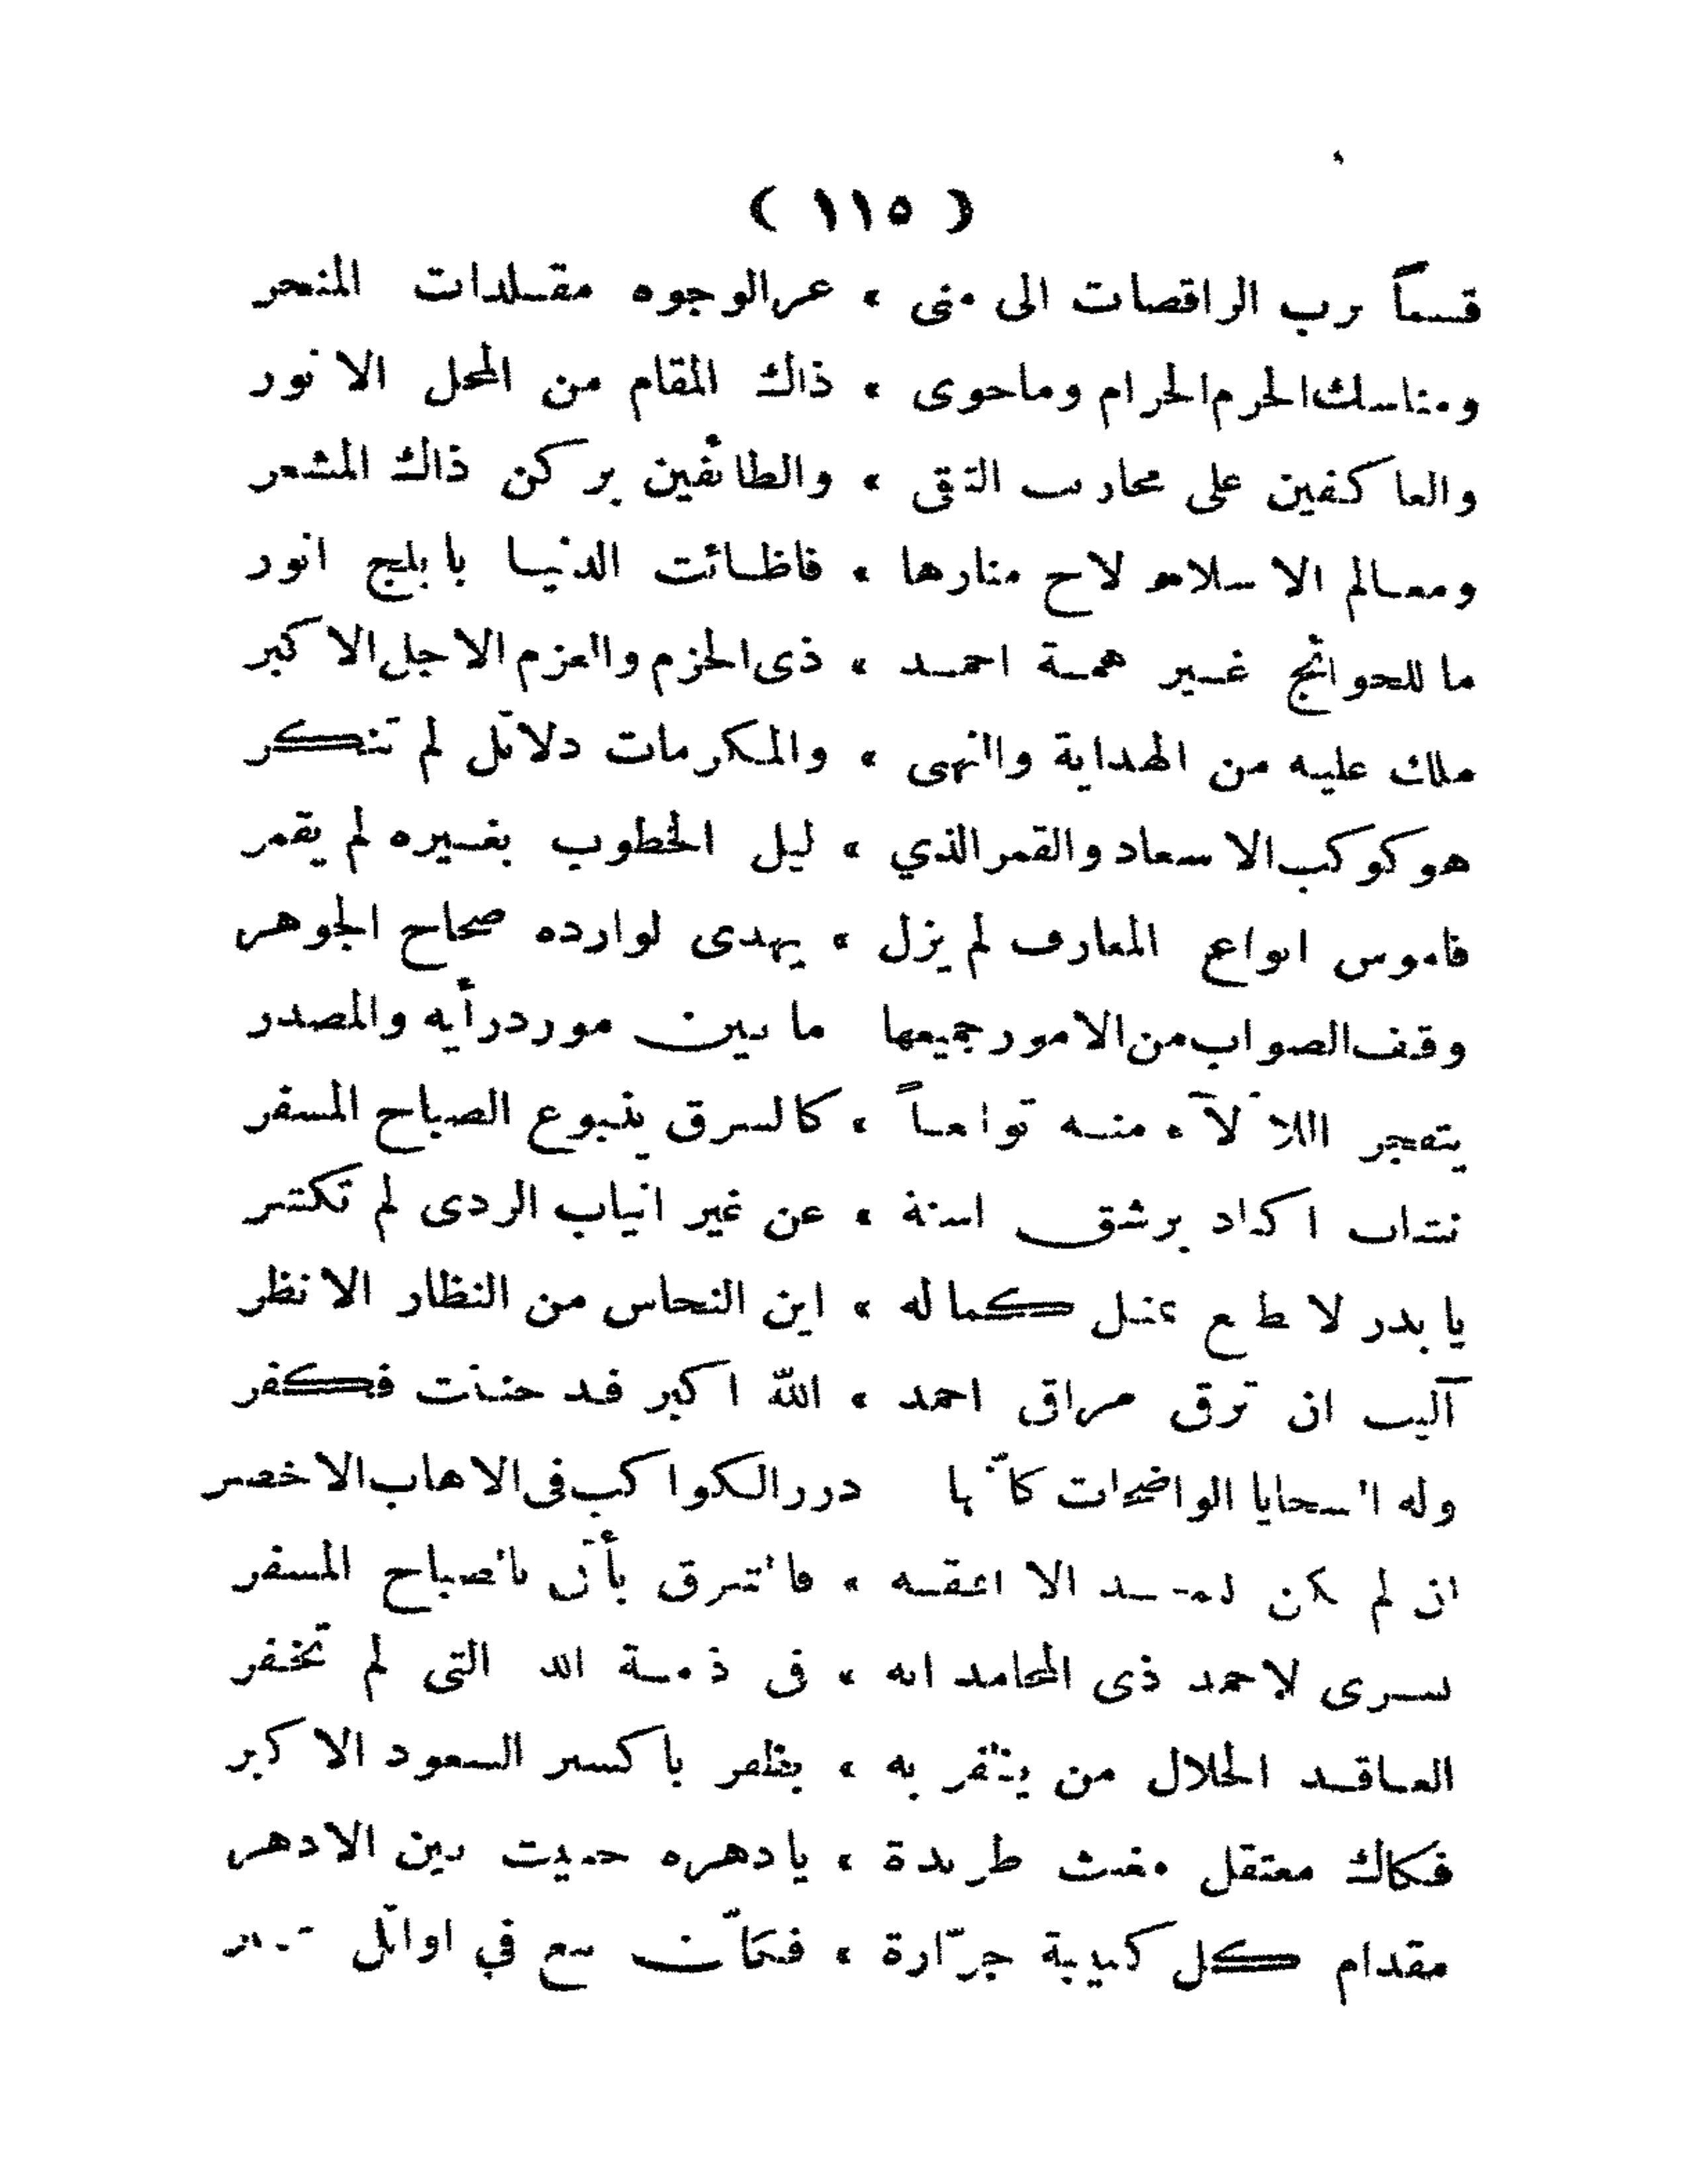 ( ١١٥ )
قسماً برب الراقصات الى منى » غر الوجوه مقلدات المنحر
ومناسك الحرم الحرام وماحوى » ذاك المقام من المحل الانور
والعاكفين على محاريب التقى » والطائفين بركن ذاك المشعر
ومعالم الاسلام لاح منارها » فاظائت الدنيا بابلج انور
ما للحوائج غير همة احمد » ذى الحزم والعزم الاجل الاكبر
ملك عليه من الهداية والنهى » والمكرمات دلائل لم تنكر
هو كوكب الاسعاد والقمر الذي » ليل الخطوب بغيره لم يقمر
قاموس انواع المعارف لم يزل » يهدى لوارده صحاح الجوهر
وقف الصواب من الامور جميعها ما بين مورد رأيه والمصدر
يتفجر اللألآء منه تواضعاً » كالبرق ينبوع الصباح المسفر
برشق اسنة » عن غير انياب الردى لم تكشر
يا بدر لا تطمع بنيل كماله » اين النحاس من النظار الانظر
آليت ان ترقى مراقى احمد » الله اكبر قد حنثت فكفر
وله السجايا الواضحات كأنها درر الكواكب فى الاهاب الاخضر
ان لم يكن الا افقه » بأن الصباح المسفر
بشرى لاحمد ذى المحامد انه » فى ذمة الله التى لم تخفر
العاقد الحلال من يظفر به » يظفر باكسير السعود الاكبر
فكاك معتقل مغيث طريدة » يا دهره حييت بين الادهر
مقدام كل كتيبة جرّارة » فكأن تبع في اوائل